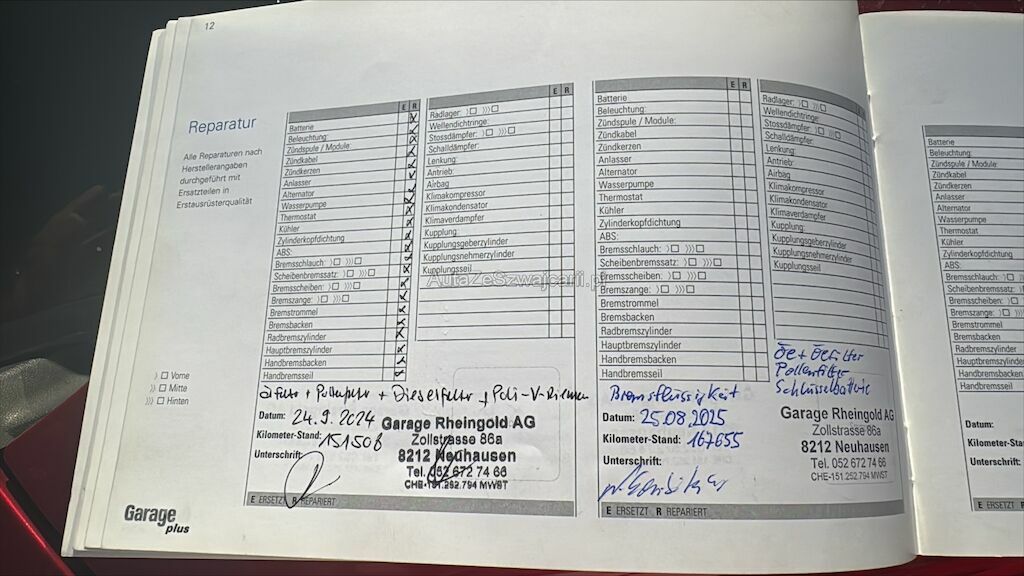 12
Reparatur
Alle Reparaturen nach
Herstellerangaben
durchgeführt mit
Ersatzteilen in
Erstausrüsterqualität
) Vorne
)) Mitte
))) Hinten
Garage
plus
E R
Batterie
Beleuchtung:
Zündspule / Module:
Zündkabel
Zündkerzen
Anlasser
Alternator
Wasserpumpe
Thermostat
Kühler
Zylinderkopfdichtung
ABS:
Bremsschlauch: ) )))
Scheibenbremssatz: ) )))
Bremsscheiben: ) )))
Bremszange: ) )))
Bremstrommel
Bremsbacken
Radbremszylinder
Hauptbremszylinder
Handbremsbacken
Handbremsseil
E R
Radlager: ) )))
Wellendichtringe:
Stossdämpfer: ) )))
Schalldämpfer:
Lenkung:
Antrieb:
Airbag
Klimakompressor
Klimakondensator
Klimaverdampfer
Kupplung:
Kupplungsgeberzylinder
Kupplungsnehmerzylinder
Kupplungsseil
+ Dieselfilter + Poli-V-Riemen
Datum: 24.9.2024
Kilometer-Stand: 151508
Unterschrift:
Garage Rheingold AG
Zollstrasse 86a
8212 Neuhausen
Tel. 052 672 74 66
CHE-151.252.794 MWST
E ERSETZT R REPARIERT
E R
Batterie
Beleuchtung:
Zündspule / Module:
Zündkabel
Zündkerzen
Anlasser
Alternator
Wasserpumpe
Thermostat
Kühler
Zylinderkopfdichtung
ABS:
Bremsschlauch: ) )))
Scheibenbremssatz: ) )))
Bremsscheiben: ) )))
Bremszange: ) )))
Bremstrommel
Bremsbacken
Radbremszylinder
Hauptbremszylinder
Handbremsbacken
Handbremsseil
Radlager: ) )))
Wellendichtringe:
Stossdämpfer: ) )))
Schalldämpfer:
Lenkung:
Antrieb:
Airbag
Klimakompressor
Klimakondensator
Klimaverdampfer
Kupplung:
Kupplungsgeberzylinder
Kupplungsnehmerzylinder
Kupplungsseil
Öl + Ölfilter
Pollenfilter
Schlüsselbatterie
Bremsflüssigkeit
Datum: 25.08.2025
Kilometer-Stand: 167655
Unterschrift:
Garage Rheingold AG
Zollstrasse 86a
8212 Neuhausen
Tel. 052 672 74 66
CHE-151.252.794 MWST
E ERSETZT R REPARIERT
Batterie
Beleuchtung:
Zündspule / Module:
Zündkabel
Zündkerzen
Anlasser
Alternator
Wasserpumpe
Thermostat
Kühler
Zylinderkopfdichtung
ABS:
Bremsschlauch: )
Scheibenbremssatz:
Bremsscheiben: )
Bremszange: ) )))
Bremstrommel
Bremsbacken
Radbremszylinder
Hauptbremszylinder
Handbremsbacken
Handbremsseil
Datum:
Kilometer-Stand:
Unterschrift:
E ERSETZT
AutaZeSzwajcarii.pl